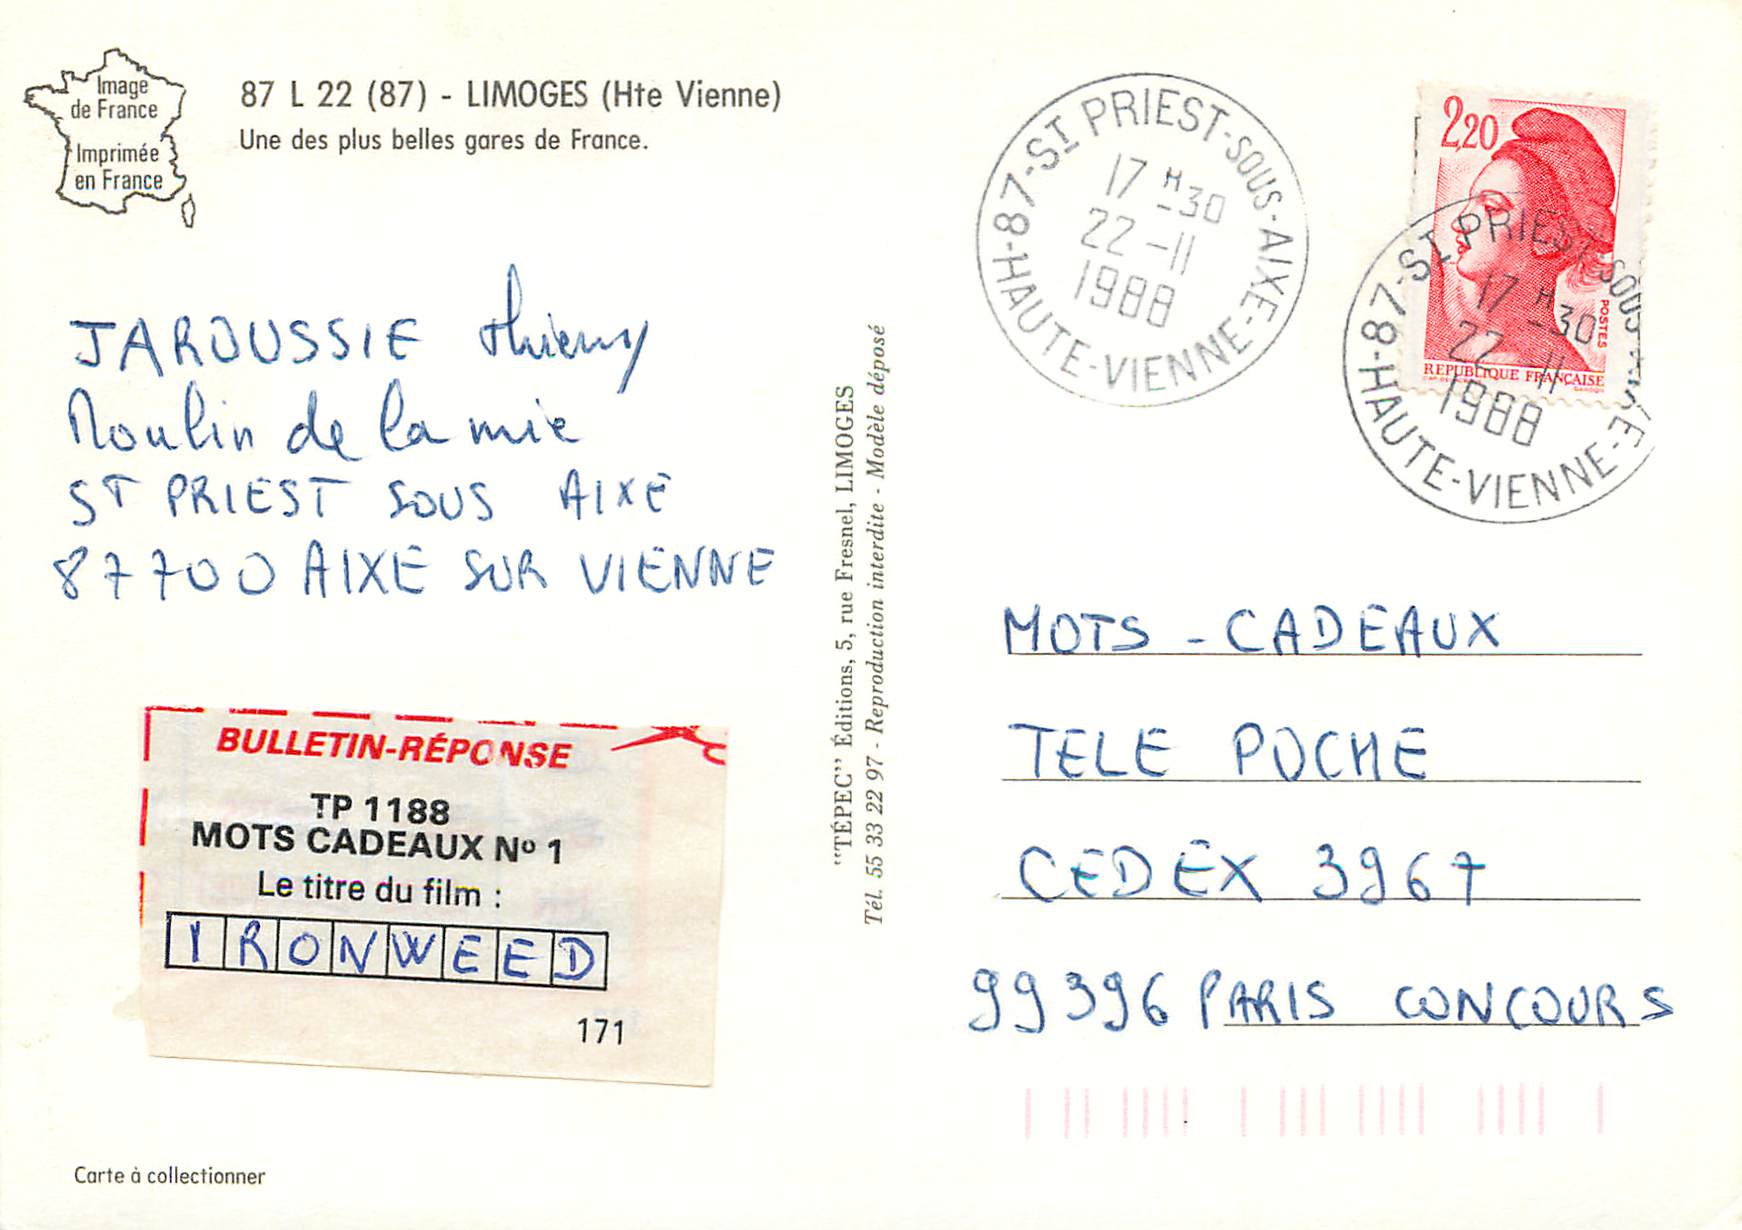 Image
de France
Imprimée
en France
87 L 22 (87) - LIMOGES (Hte Vienne)
Une des plus belles gares de France.
JAROUSSIE thierry
Moulin de la mie
ST PRIEST SOUS AIXE
87700 AIXE SUR VIENNE
BULLETIN-RÉPONSE
TP 1188
MOTS CADEAUX Nº 1
Le titre du film :
IRONWEED
171
Carte à collectionner
"TÉPEC" Éditions, 5, rue Fresnel, LIMOGES
Tél. 55 33 22 97 - Reproduction interdite - Modèle déposé
87-ST PRIEST-SOUS-AIXE-H-HAUTE-VIENNE-
17 H -30
22-11
1988
2,20
POSTES
REPUBLIQUE FRANÇAISE
87-ST PRIEST-SOUS-AIXE-H-HAUTE-VIENNE-
17 H -30
22-11
1988
MOTS - CADEAUX
TELE POCHE
CEDEX 3967
99396 PARIS CONCOURS